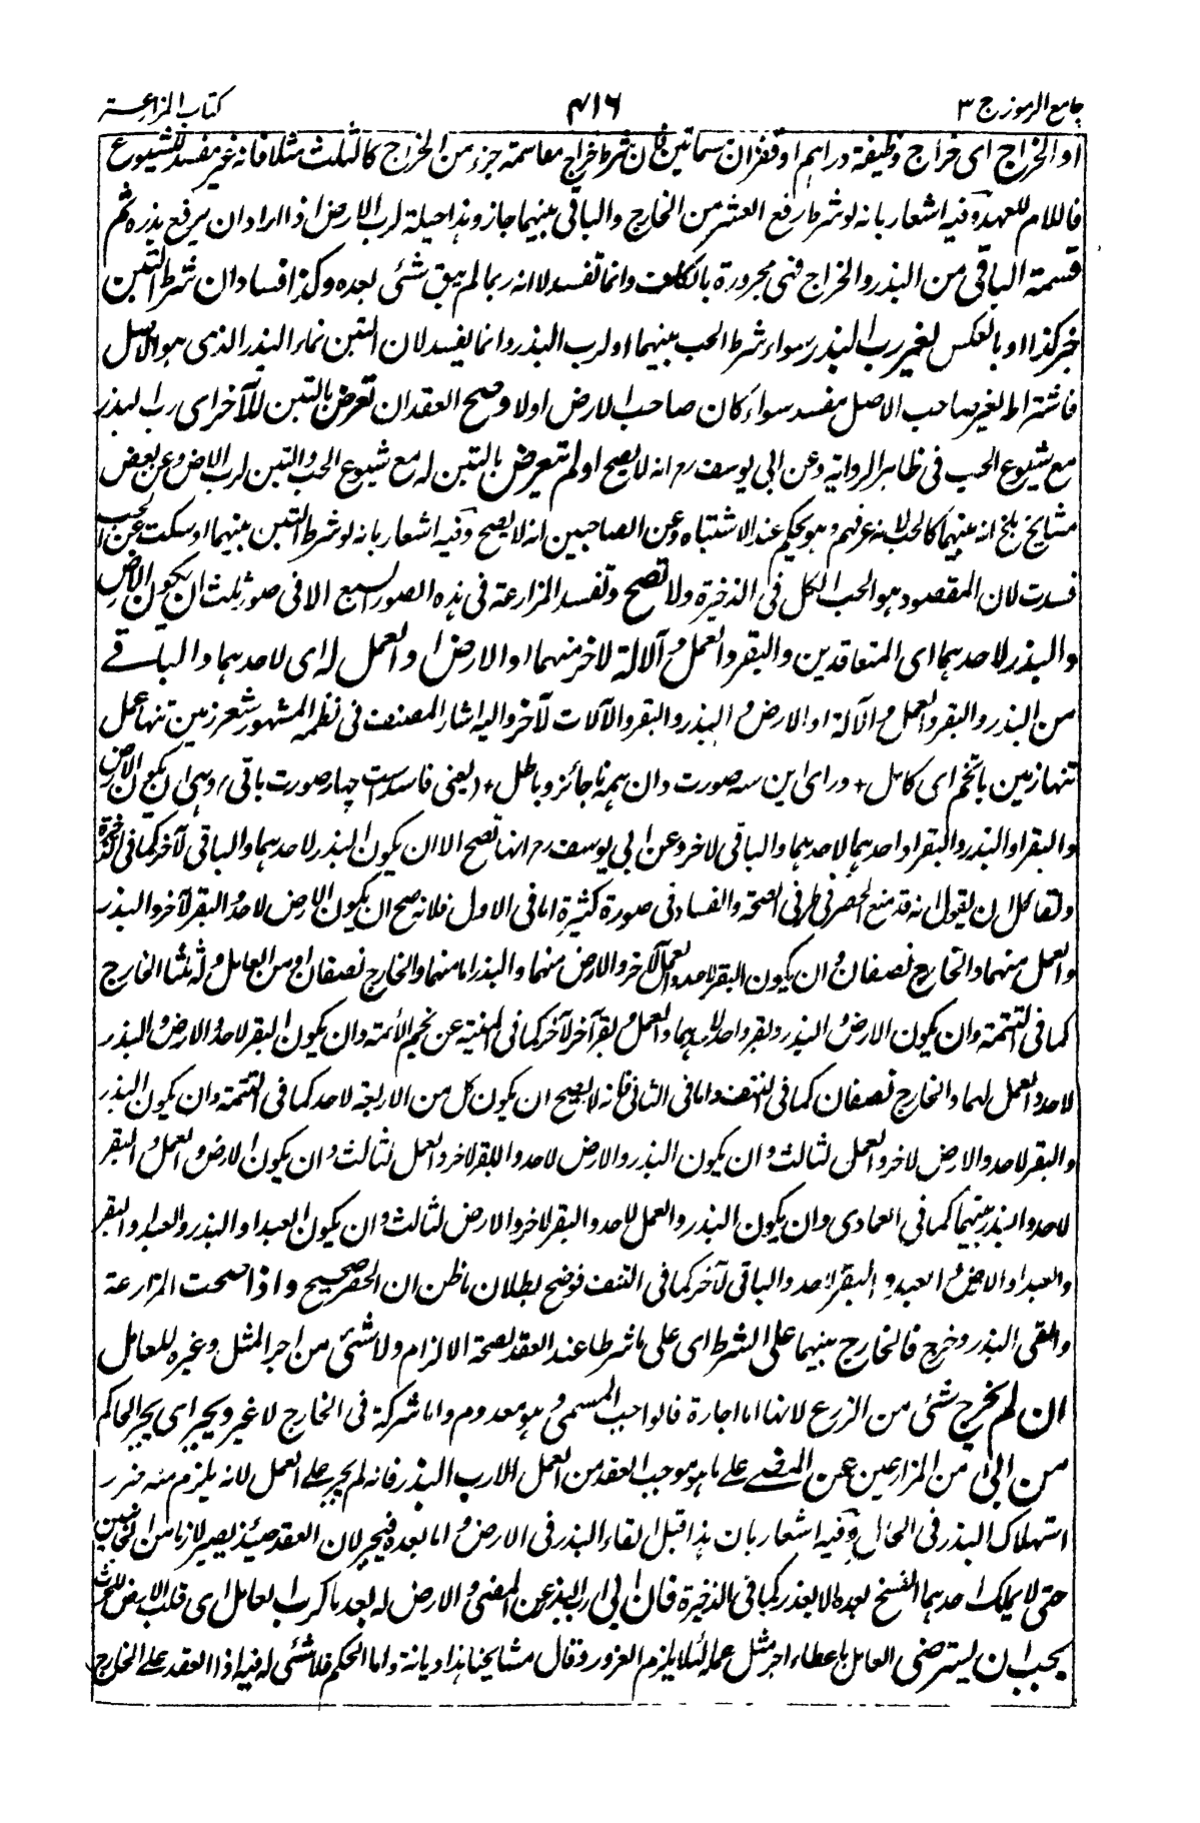 جامع الرموز ج ٣
٤١٦
كتاب المزارعة
او الخراج اى خراج وظيفة دراهم او قفزان مسماتين فان شرط خراج مقاسمة جزء من الخراج كالثلث مثلا فانه غير مفسد للشيوع
فاللام للعهد وفيه اشعار بانه لو شرط رفع العشر من الخارج والباقى بينهما جاز وهذا حيلة لرب الارض اذا اراد ان يرفع بذره ثم
قسمة الباقى من البذر والخراج فهى مجرورة بالكاف وانما تفسد لانه ربما لم يبق شئ بعده وكذا فساد ان شرط التبن
خبر كذا او بالعكس لغير رب البذر سواء شرط الحب بينهما او لرب البذر وانما يفسد لان التبن نماء البذر الذى هو الاصل
فاشتراط لغير صاحب الاصل مفسد سواء كان صاحب الارض اولا وصح العقد ان تعرض بالتبن للآخر اى رب البذر
مع شيوع الحب فى ظاهر الرواية وعن ابى يوسف رم انه لا يصح او لم يتعرض بالتبن له مع شيوع الحب والتبن لرب الارض وعن بعض
مشايخ بلخ انه بينهما كالحب لانه عرفهم وهو يحكم عند الاشتباه وعن الصاحبين انه لا يصح وفيه اشعار بانه لو شرط التبن بينهما وسكت عن الحب
فسدت لان المقصود هو الحب الكل فى الذخيرة ولا تصح وتفسد المزارعة فى هذه الصور السبع الا فى صور ثلث ان يكون الارض
والبذر لاحدهما اى المتعاقدين والبقر والعمل والآلة لاخر منهما او الارض او العمل له اى لاحدهما والباقى
من البذر والبقر والعمل والآلة او الارض والبذر والبقر والآلات لآخر واليه اشار المصنف فى نظمه المشهور شعر زمين تنها عمل
تنها زمين با تخم اى كامل + وراى اين سه صورت دان همه ناجائز وباطل + (يعنى فاسدست چهار صورت باقى) وهى ان يكون الارض
والبقر او البذر والبقر او احدهما لاحدهما والباقى لاخر وعن ابى يوسف رم انها تصح الا ان يكون البذر لاحدهما والباقى لآخر كما فى الذخيرة
ولقائل ان يقول انه قد منع الحصر فى طرفى الصحة والفساد فى صورة كثيرة اما فى الاول فلانه صح ان يكون الارض لاحد والبقر لآخر والبذر
والعمل منهما والخارج نصفان وان يكون البقر لاحد والعمل لآخر والارض منهما والبذر اما منهما والخارج نصفان او من العامل وله ثلثا الخارج
كما فى التتمة وان يكون الارض والبذر وبقر واحد لاحدهما والعمل وبقر آخر لآخر كما فى المنية عن نجم الأئمة وان يكون البقر لاحد والارض والبذر
لاحد والعمل لهما والخارج نصفان كما فى النتف واما فى الثانى فانه لا يصح ان يكون كل من الاربعة لاحد كما فى التتمة وان يكون البذر
والبقر لاحد والارض لاخر والعمل لثالث وان يكون البذر والارض لاحد والبقر لاخر والعمل لثالث وان يكون الارض والعمل والبقر
لاحد والبذر بينهما كما فى العمادى وان يكون البذر والعمل لاحد والبقر لاخر والارض لثالث وان يكون العبد او البذر والعبد او البقر
والعبد او الارض والعبد و البقر لاحد والباقى لآخر كما فى النتف فوضح بطلان ما ظن ان الحصر صحيح واذا صحت المزارعة
والقى البذر وخرج فالخارج بينهما على الشرط اى على ما شرطا عند العقد لصحة الالزام ولا شئ من اجر المثل وغيره للعامل
ان لم يخرج شئ من الزرع لانها اما اجارة فالواجب المسمى وهو معدوم واما شركة فى الخارج لا غير ويجبر اى يجبر الحاكم
من ابى من المزارعين عن المضى على ما هو موجب العقد من العمل الا رب البذر فانه لم يجبر على العمل لانه يلزم منه ضرر
استهلاك البذر فى الحال وفيه اشعار بان هذا قبل القاء البذر فى الارض واما بعده فيجبر لان العقد حينئذ يصير لازما من الجانبين
حتى لا يملك احدهما الفسخ بعده الا بعذر كما فى الذخيرة فان ابى رب البذر عن المضى والارض له بعد ما كرب العامل اى قلب الارض للحرث
يجب ان يسترضى العامل باعطاء اجر مثل عمله لئلا يلزم الغرور وقال مشايخنا هذا ديانة واما الحكم فلا شئ له فيه اذ العقد على الخارج